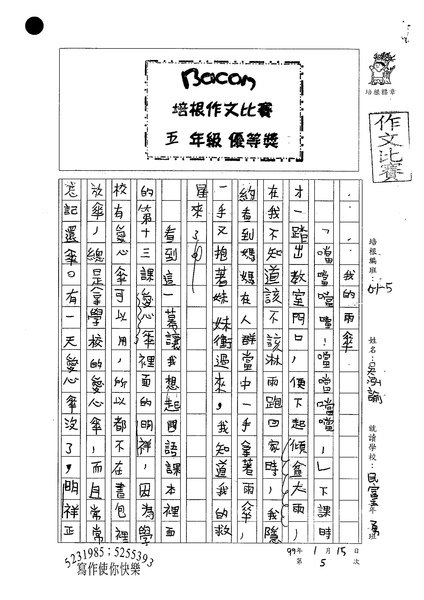 Bacon
培根作文比賽
五年級優等獎
培根標章
作文比賽
培根編班：
姓名：
就讀學校：
民富
年
班
99年1月15日
第5次
我的雨傘
「噹噹噹噹！噹噹噹噹！」下課時
才一踏出教室門口，便下起傾盆大雨，
在我不知道該不該淋雨跑回家時，我隱
約看到媽媽在人群當中一手拿著雨傘，
一手又抱著妹妹衝過來，我知道我的救
星來了！
看到這一幕讓我想起國語課本裡面
的第十三課愛心傘裡面的明祥，因為學
校有愛心傘可以用，所以都不在書包裡
放傘，總是拿學校的愛心傘，而且常常
忘記還傘。有一天愛心傘沒了，明祥正
5231985；5255393
寫作使你快樂